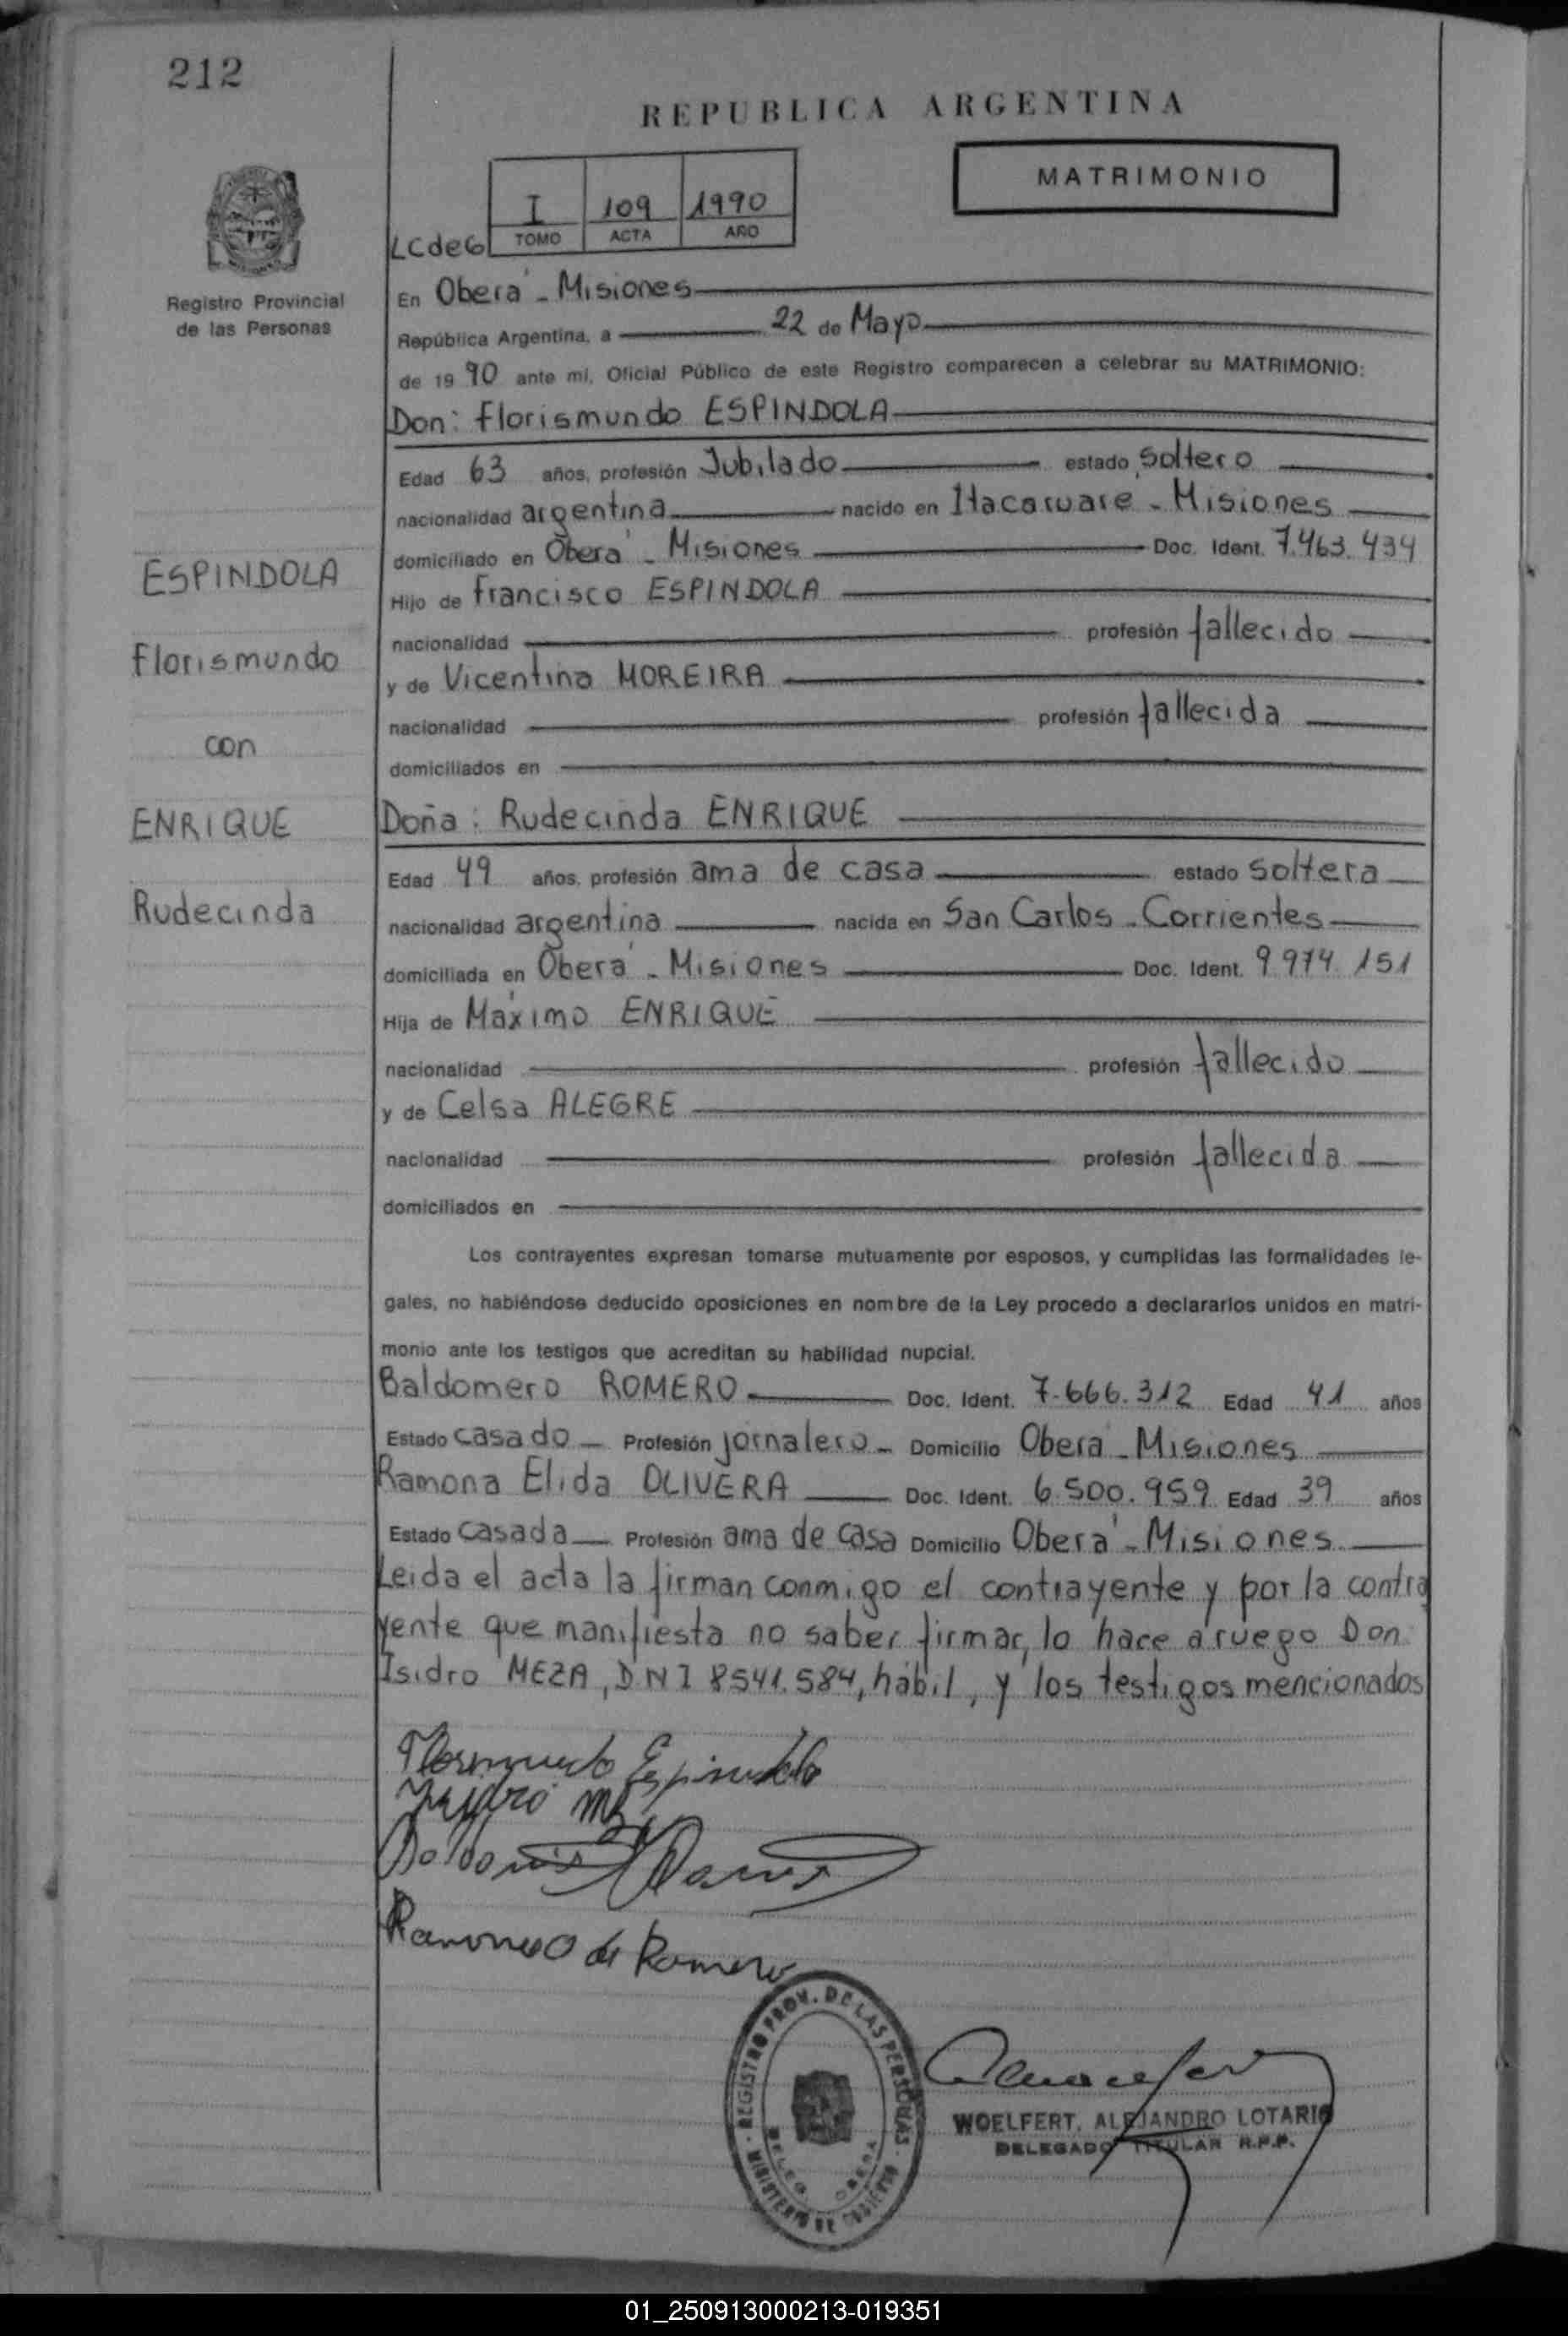 212
REPUBLICA ARGENTINA
MATRIMONIO
I 109 1990
LCdeG TOMO ACTA AÑO
Registro Provincial
de las Personas
En Oberá - Misiones
República Argentina, a 22 de Mayo
de 19 90 ante mí, Oficial Público de este Registro comparecen a celebrar su MATRIMONIO:
Don: Florismundo ESPINDOLA
Edad 63 años, profesión Jubilado estado soltero
nacionalidad argentina nacido en Itacaruaré - Misiones
domiciliado en Oberá - Misiones Doc. Ident. 7.463.434
Hijo de Francisco ESPINDOLA
nacionalidad profesión fallecido
y de Vicentina MOREIRA
nacionalidad profesión fallecida
domiciliados en
ESPINDOLA
Florismundo
con
ENRIQUE
Rudecinda
Doña: Rudecinda ENRIQUE
Edad 49 años, profesión ama de casa estado soltera
nacionalidad argentina nacida en San Carlos - Corrientes
domiciliada en Oberá - Misiones Doc. Ident. 9.974.151
Hija de Máximo ENRIQUE
nacionalidad profesión fallecido
y de Celsa ALEGRE
nacionalidad profesión fallecida
domiciliados en
Los contrayentes expresan tomarse mutuamente por esposos, y cumplidas las formalidades le-
gales, no habiéndose deducido oposiciones en nombre de la Ley procedo a declararlos unidos en matri-
monio ante los testigos que acreditan su habilidad nupcial.
Baldomero ROMERO Doc. Ident. 7.666.312 Edad 41 años
Estado casado - Profesión jornalero - Domicilio Oberá - Misiones
Ramona Elida OLIVERA Doc. Ident. 6.500.959 Edad 39 años
Estado casada Profesión ama de casa Domicilio Oberá - Misiones
Leida el acta la firman conmigo el contrayente y por la contra
yente que manifiesta no saber firmar, lo hace a ruego Don
Isidro MEZA, DNI 8541.584, hábil, y los testigos mencionados
Florismundo Espindola
Isidro
Ramona O de Romero
REGISTRO PROV. DE LAS PERSONAS
MINISTERIO DE GOBIERNO
DELEG. OBERA
WOELFERT, ALEJANDRO LOTARIO
DELEGADO TITULAR R.P.P.
01_250913000213-019351